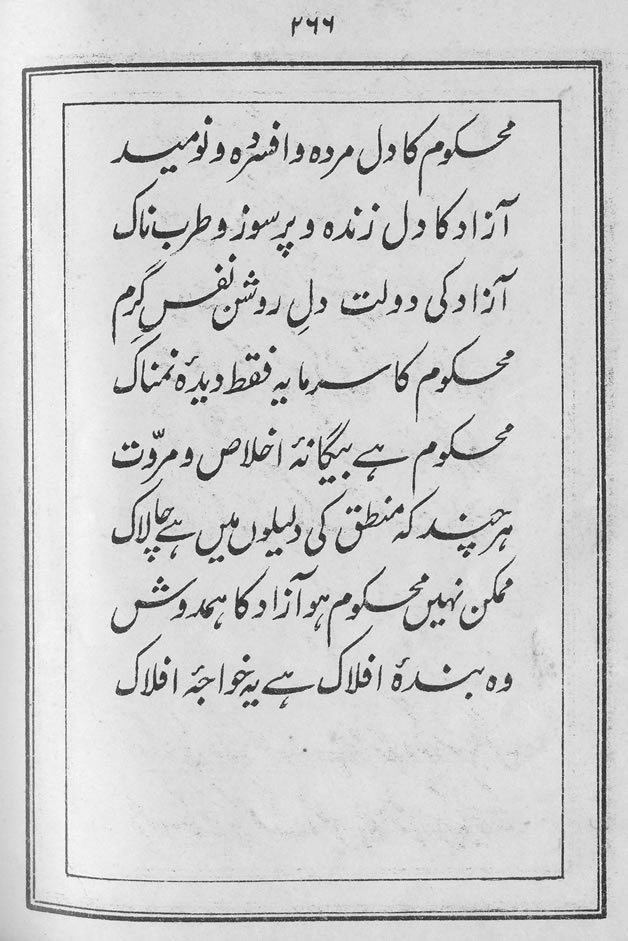 ۲۶۶
محکوم کا دل مردہ و افسردہ و نومید
آزاد کا دل زندہ و پرسوز و طرب ناک
آزاد کی دولت دلِ روشن نفسِ گرم
محکوم کا سرمایہ فقط دیدۂ نمناک
محکوم ہے بیگانۂ اخلاص و مروّت
ہر چند کہ منطق کی دلیلوں میں ہے چالاک
ممکن نہیں محکوم ہو آزاد کا ہمدوش
وہ بندۂ افلاک ہے یہ خواجۂ افلاک